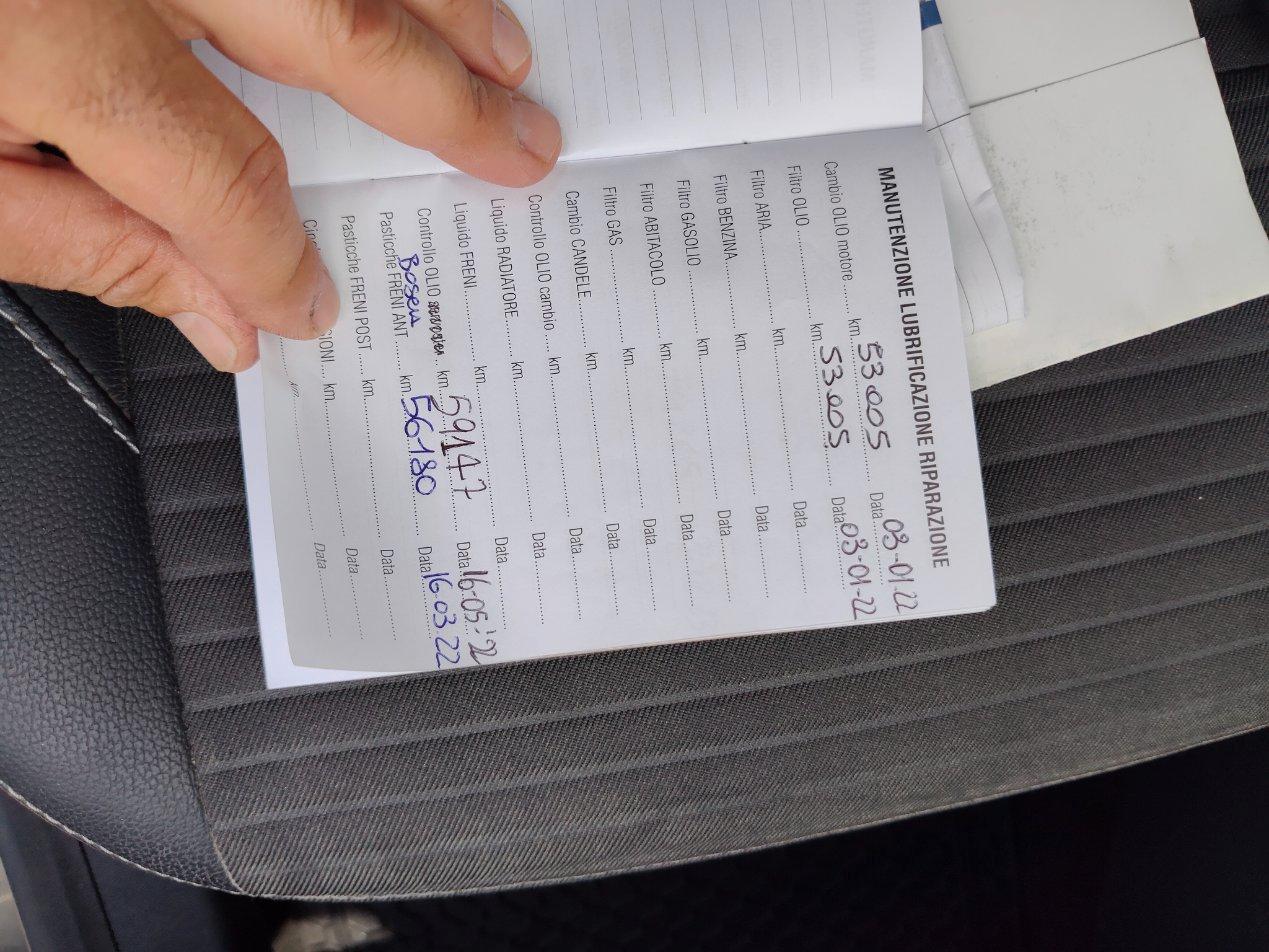 MANUTENZIONE LUBRIFICAZIONE RIPARAZIONE
Cambio OLIO motore ........ km. 53005 Data 03-01.22
Filtro OLIO ........ km. 53.005 Data 03-01-22
Filtro ARIA ........ km. ........ Data ........
Filtro BENZINA ........ km. ........ Data ........
Filtro GASOLIO ........ km. ........ Data ........
Filtro ABITACOLO ........ km. ........ Data ........
Filtro GAS ........ km. ........ Data ........
Cambio CANDELE ........ km. ........ Data ........
Controllo OLIO cambio ........ km. ........ Data ........
Liquido RADIATORE ........ km. ........ Data ........
Liquido FRENI ........ km. ........ Data ........
Controllo OLIO km. 59147 Data 16-05-'22
Bosch
Pasticche FRENI ANT ........ km. 56180 Data 16.03.22
Pasticche FRENI POST ........ km. ........ Data ........
km. ........ Data ........